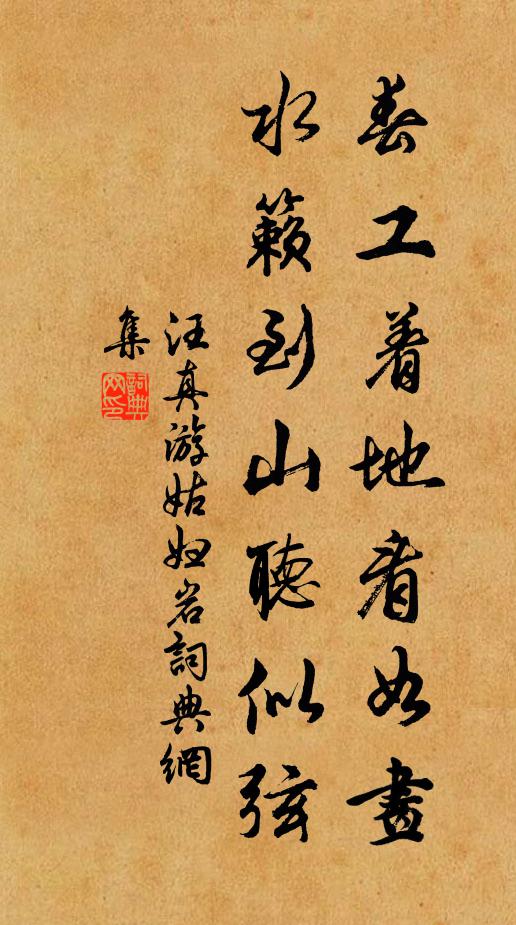 春工着地看如畫
水籟到山聽似弦
汪真游姑妲岩詞典網
集
詞典
网印